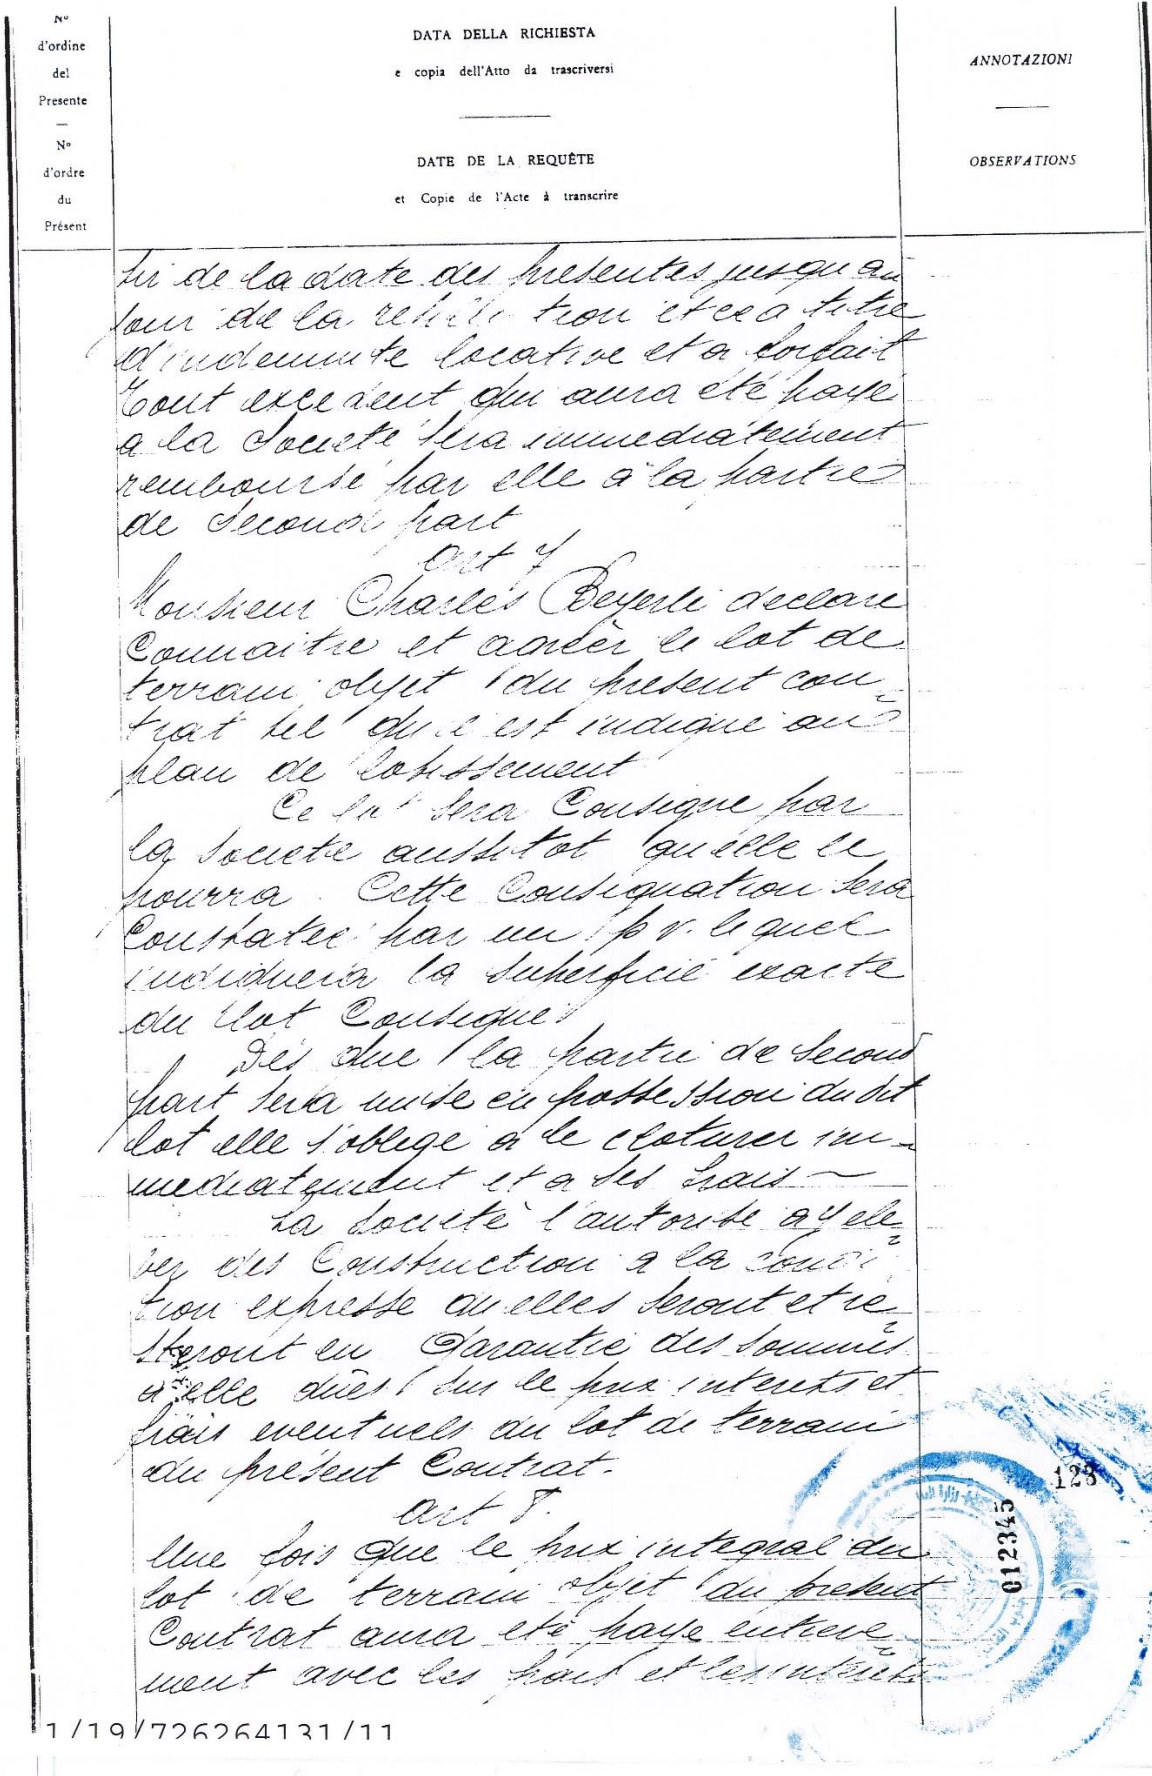 N°
d'ordine
del
Presente
—
N°
d'ordre
du
Présent
DATA DELLA RICHIESTA
e copia dell'Atto da trascriversi
DATE DE LA REQUÊTE
et Copie de l'Acte à transcrire
ANNOTAZIONI
OBSERVATIONS
tir de la date des presentes jusqu'au
jour de la tion et ce a titre
d'indemnite locative et a forfait
Tout excedent qui aura été payé
a la Societé sera immediatement
remboursé par elle à la partie
de Second part
Art 7
Monsieur Charles Beyerli declare
Connaitre et agréer le lot de
terrain objet du present con-
trat tel qu'il est indique au
plan de lotissement
Ce lot sera Consigne par
la Societe aussitot qu'elle le
pourra. Cette Consignation sera
Constatee par un p.v. lequel
indiquera la superficie exacte
du lot Consigne.
Dés que la partie de Second
part sera mise en possession du dit
lot elle s'oblege a le cloturer im-
mediatement et a ses frais —
La Societé l'autorise a y ele-
ver des Construction a la condi-
tion expresse qu'elles seront et re-
steront en Garantie des sommes
a elle dûes sur le prix interets et
frais eventuels du lot de terrain
du présent Contrat.
Art 8.
Une fois que le prix integral du
lot de terrain objet du present
Contrat aura eté paye entiere-
ment avec les frais et les intérêts
123
012345
1/19/726264131/11